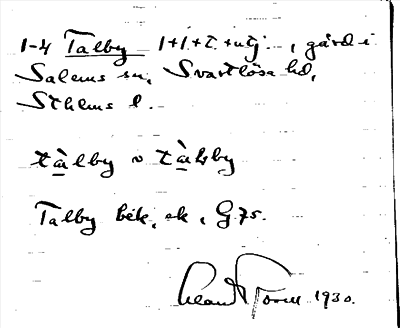 1-4 Talby 1+1+t.+utj., gård i
Salems sn, Svartlösa hd,
Sthlms l.
tàlby o tàlsby
Talby bek, ek, G75.
1930.